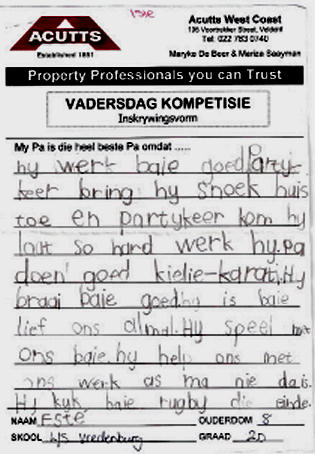 Este
ACUTTS
Established 1851
Acutts West Coast
136 Voortrekker Street, Veldenf
Tel: 022 783 0740
Maryke De Beer & Mariza Sooyman
Property Professionals you can Trust
VADERSDAG KOMPETISIE
Inskrywingsvorm
My Pa is die heel beste Pa omdat .....
hy werk baie goed Partyk-
keer bring hy snoek huis
toe en partykeer kom hy
laat so hard werk hy. Pa
doen goed kielie-karate. Hy
braai baie goed. hy is baie
lief ons almal. Hy speel met
ons baie. hy help ons met
ons werk as ma nie da is.
Hy kuk baie rugby die einde.
NAAM Esté OUDERDOM 8
SKOOL L/S Vredenburg GRAAD 2D